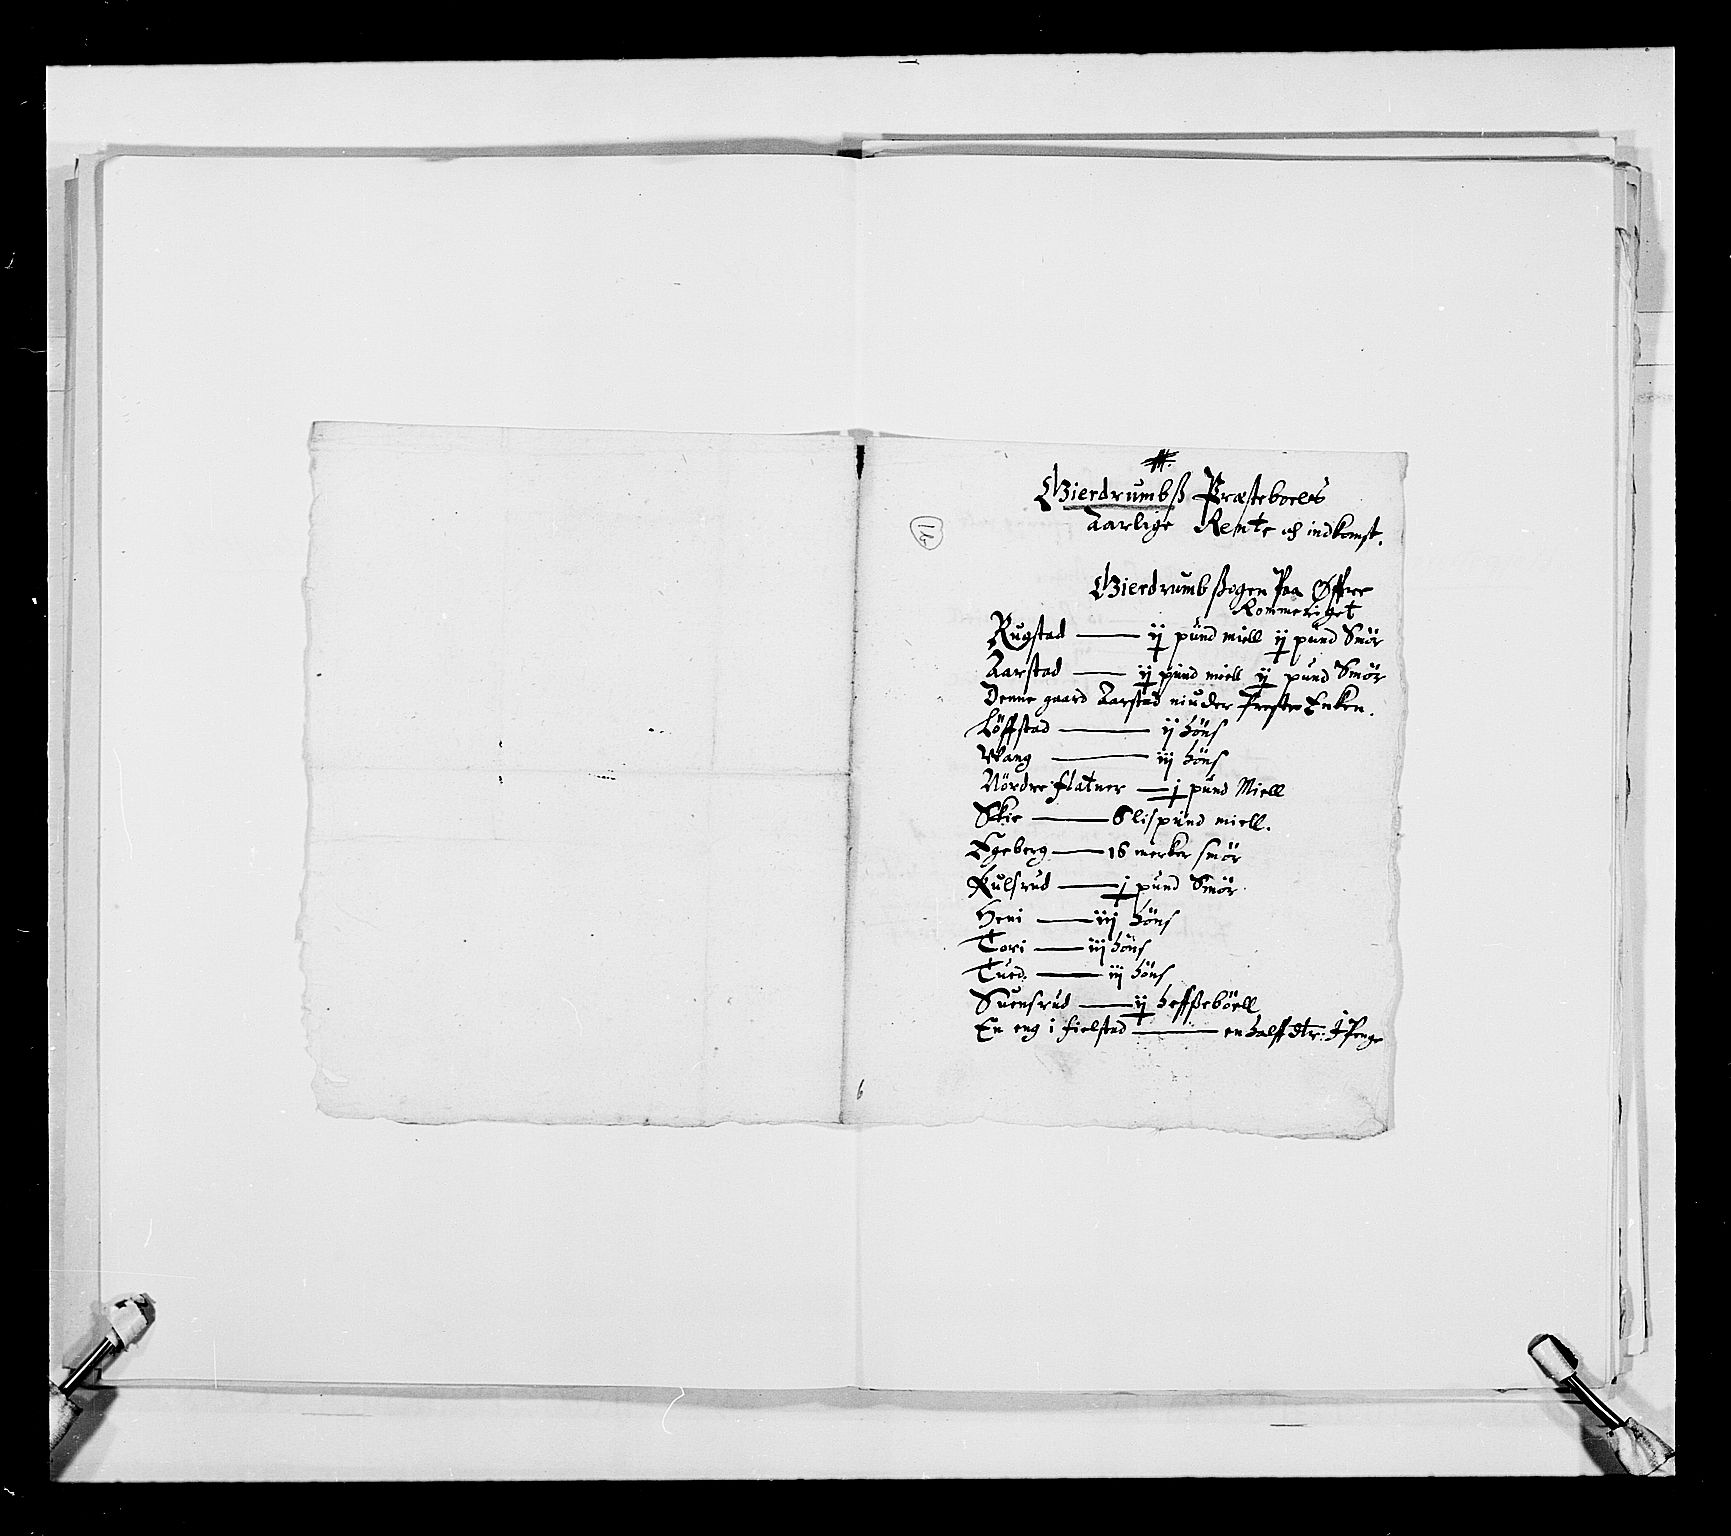 Gierdrumbß Præsteboels
Aarlige Rente och indkomst.
Gierdrumb ßogen Paa Øffre
Rommeriget
Rugstad — ij pund miell ij pund Smör
Aarstad — ij pund miell ij pund Smör
Denne gaard Aarstad niuder Preste Enken.
Löffstad — ij höns
Wang — iij höns
Nördre flatner — j pund Miell
Skie — 6 lispund miell.
Egeberg — 16 merker smör
Kulsrud — j pund Smör
Heni — iiij höns
Tori — iij höns
Tued. — iij höns
Suensrud — ij heffßeböell
En eng i fielstad — en halff dlr: j Penge
6